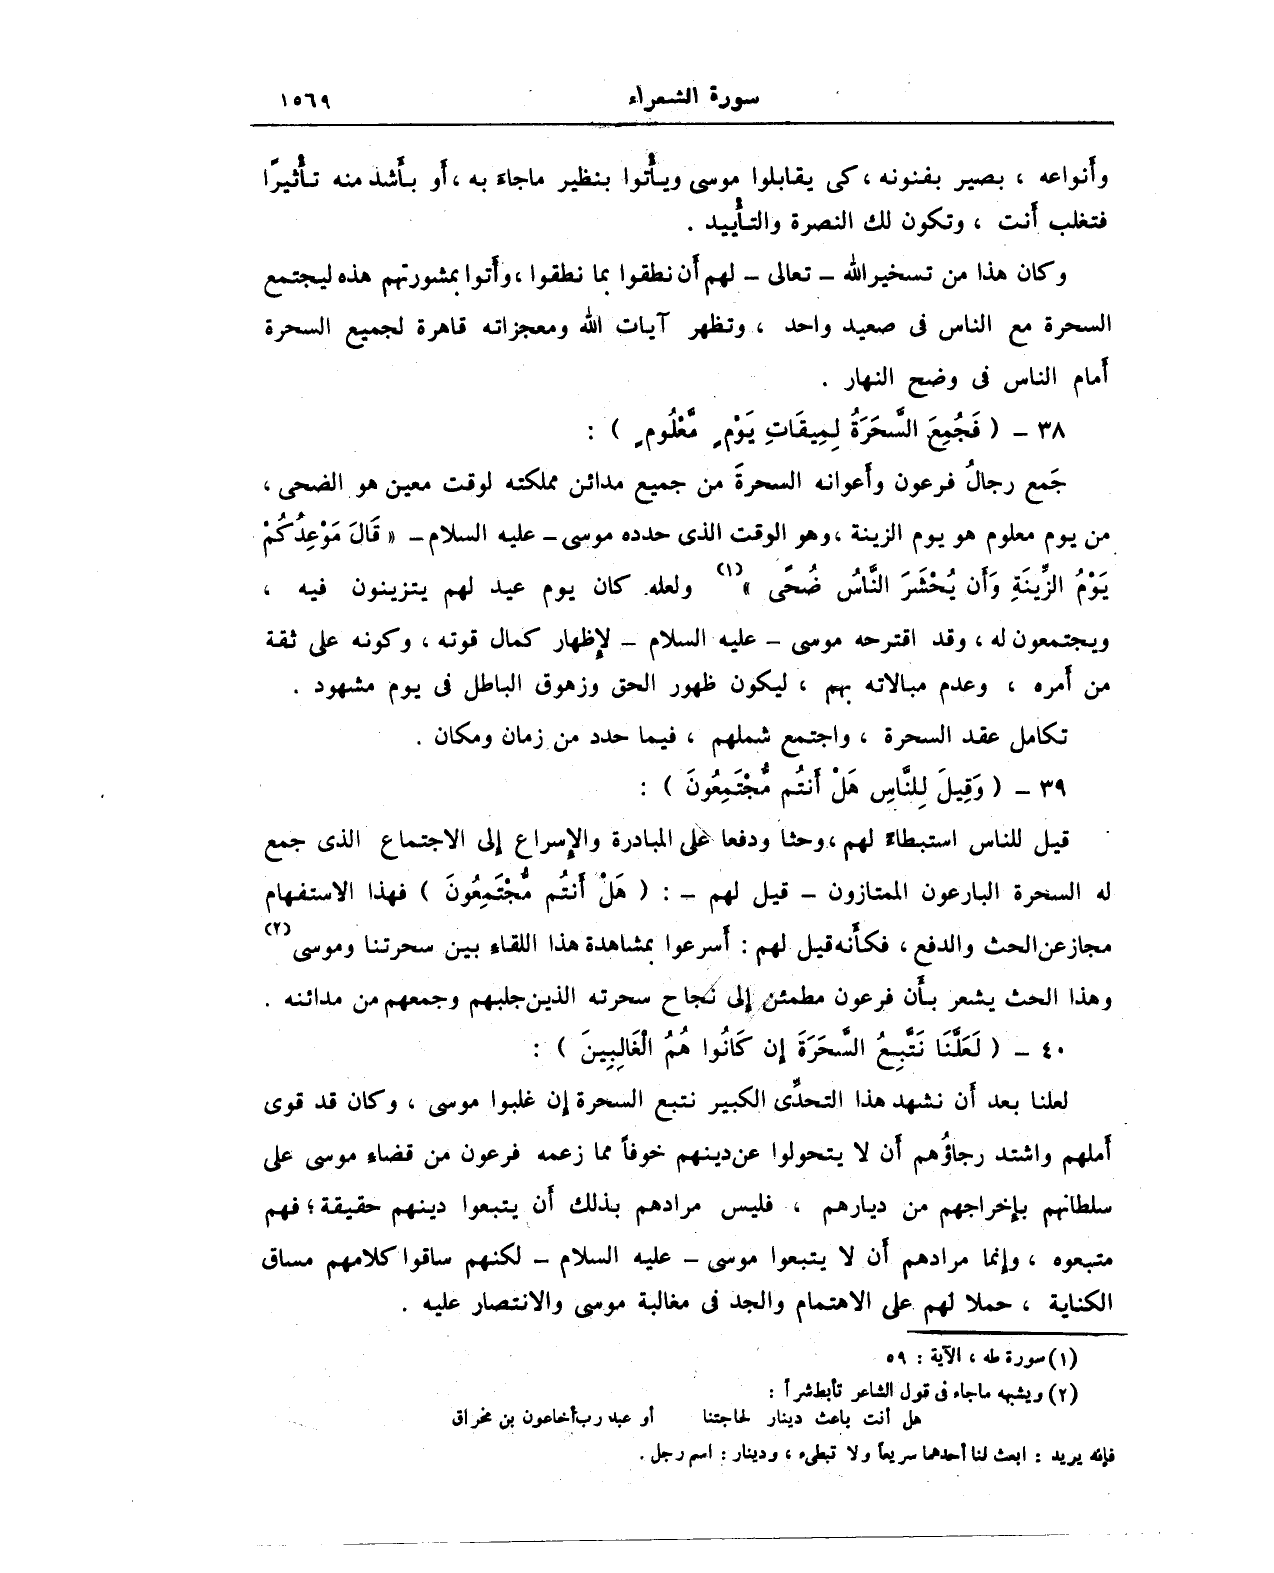 سورة الشعراء ١٥٦٩
وأَنواعه ، بصير بفنونه ، كى يقابلوا موسى ويأْتوا بنظير ماجاءَ به ، أَو بأَشد منه تأْثيرًا
فتغلب أَنت ، وتكون لك النصرة والتأْييد .
وكان هذا من تسخيرالله – تعالى – لهم أَن نطقوا بما نطقوا ، وأَتوا بمشورتهم هذه ليجتمع
السحرة مع الناس فى صعيد واحد ، وتظهر آيات الله ومعجزاته قاهرة لجميع السحرة
أَمام الناس فى وضح النهار .
٣٨ – ( فَجُمِعَ السَّحَرَةُ لِمِيقَاتِ يَوْمٍ مَّعْلُومٍ ) :
جَمع رجالُ فرعون وأَعوانه السحرةَ من جميع مدائن مملكته لوقت معين هو الضحى ،
من يوم معلوم هو يوم الزينة ، وهو الوقت الذى حدده موسى – عليه السلام – « قَالَ مَوْعِدُكُمْ
يَوْمُ الزِّينَةِ وَأَن يُحْشَرَ النَّاسُ ضُحًى »(١) ولعله كان يوم عيد لهم يتزينون فيه ،
ويجتمعون له ، وقد اقترحه موسى – عليه السلام – لإِظهار كمال قوته ، وكونه على ثقة
من أَمره ، وعدم مبالاته بهم ، ليكون ظهور الحق وزهوق الباطل فى يوم مشهود .
تكامل عقد السحرة ، واجتمع شملهم ، فيما حدد من زمان ومكان .
٣٩ – ( وَقِيلَ لِلنَّاسِ هَلْ أَنتُم مُّجْتَمِعُونَ ) :
قيل للناس استبطاءً لهم ، وحثا ودفعا على المبادرة والإِسراع إِلى الاجتماع الذى جمع
له السحرة البارعون الممتازون – قيل لهم – : ( هَلْ أَنتُم مُّجْتَمِعُونَ ) فهذا الاستفهام
مجاز عن الحث والدفع ، فكأَنه قيل لهم : أَسرعوا بمشاهدة هذا اللقاء بين سحرتنا وموسى(٢)
وهذا الحث يشعر بأَن فرعون مطمئن إِلى نجاح سحرته الذين جلبهم وجمعهم من مدائنه .
٤٠ – ( لَعَلَّنَا نَتَّبِعُ السَّحَرَةَ إِن كَانُوا هُمُ الْغَالِبِينَ ) :
لعلنا بعد أَن نشهد هذا التحدِّى الكبير نتبع السحرة إِن غلبوا موسى ، وكان قد قوى
أَملهم واشتد رجاؤُهم أَن لا يتحولوا عن دينهم خوفاً مما زعمه فرعون من قضاء موسى على
سلطانهم بإِخراجهم من ديارهم ، فليس مرادهم بذلك أَن يتبعوا دينهم حقيقة ؛ فهم
متبعوه ، وإِنما مرادهم أَن لا يتبعوا موسى – عليه السلام – لكنهم ساقوا كلامهم مساق
الكناية ، حملا لهم على الاهتمام والجد فى مغالبة موسى والانتصار عليه .
(١) سورة طه ، الآية : ٥٩
(٢) ويشبه ماجاء فى قول الشاعر تأبط شرأ :
هل أنت باعث دينار لحاجتنا أو عبد رب أخاعون بن مخراق
فإنه يريد : ابعث لنا أحدهما سريعاً ولا تبطىء ، ودينار : اسم رجل .